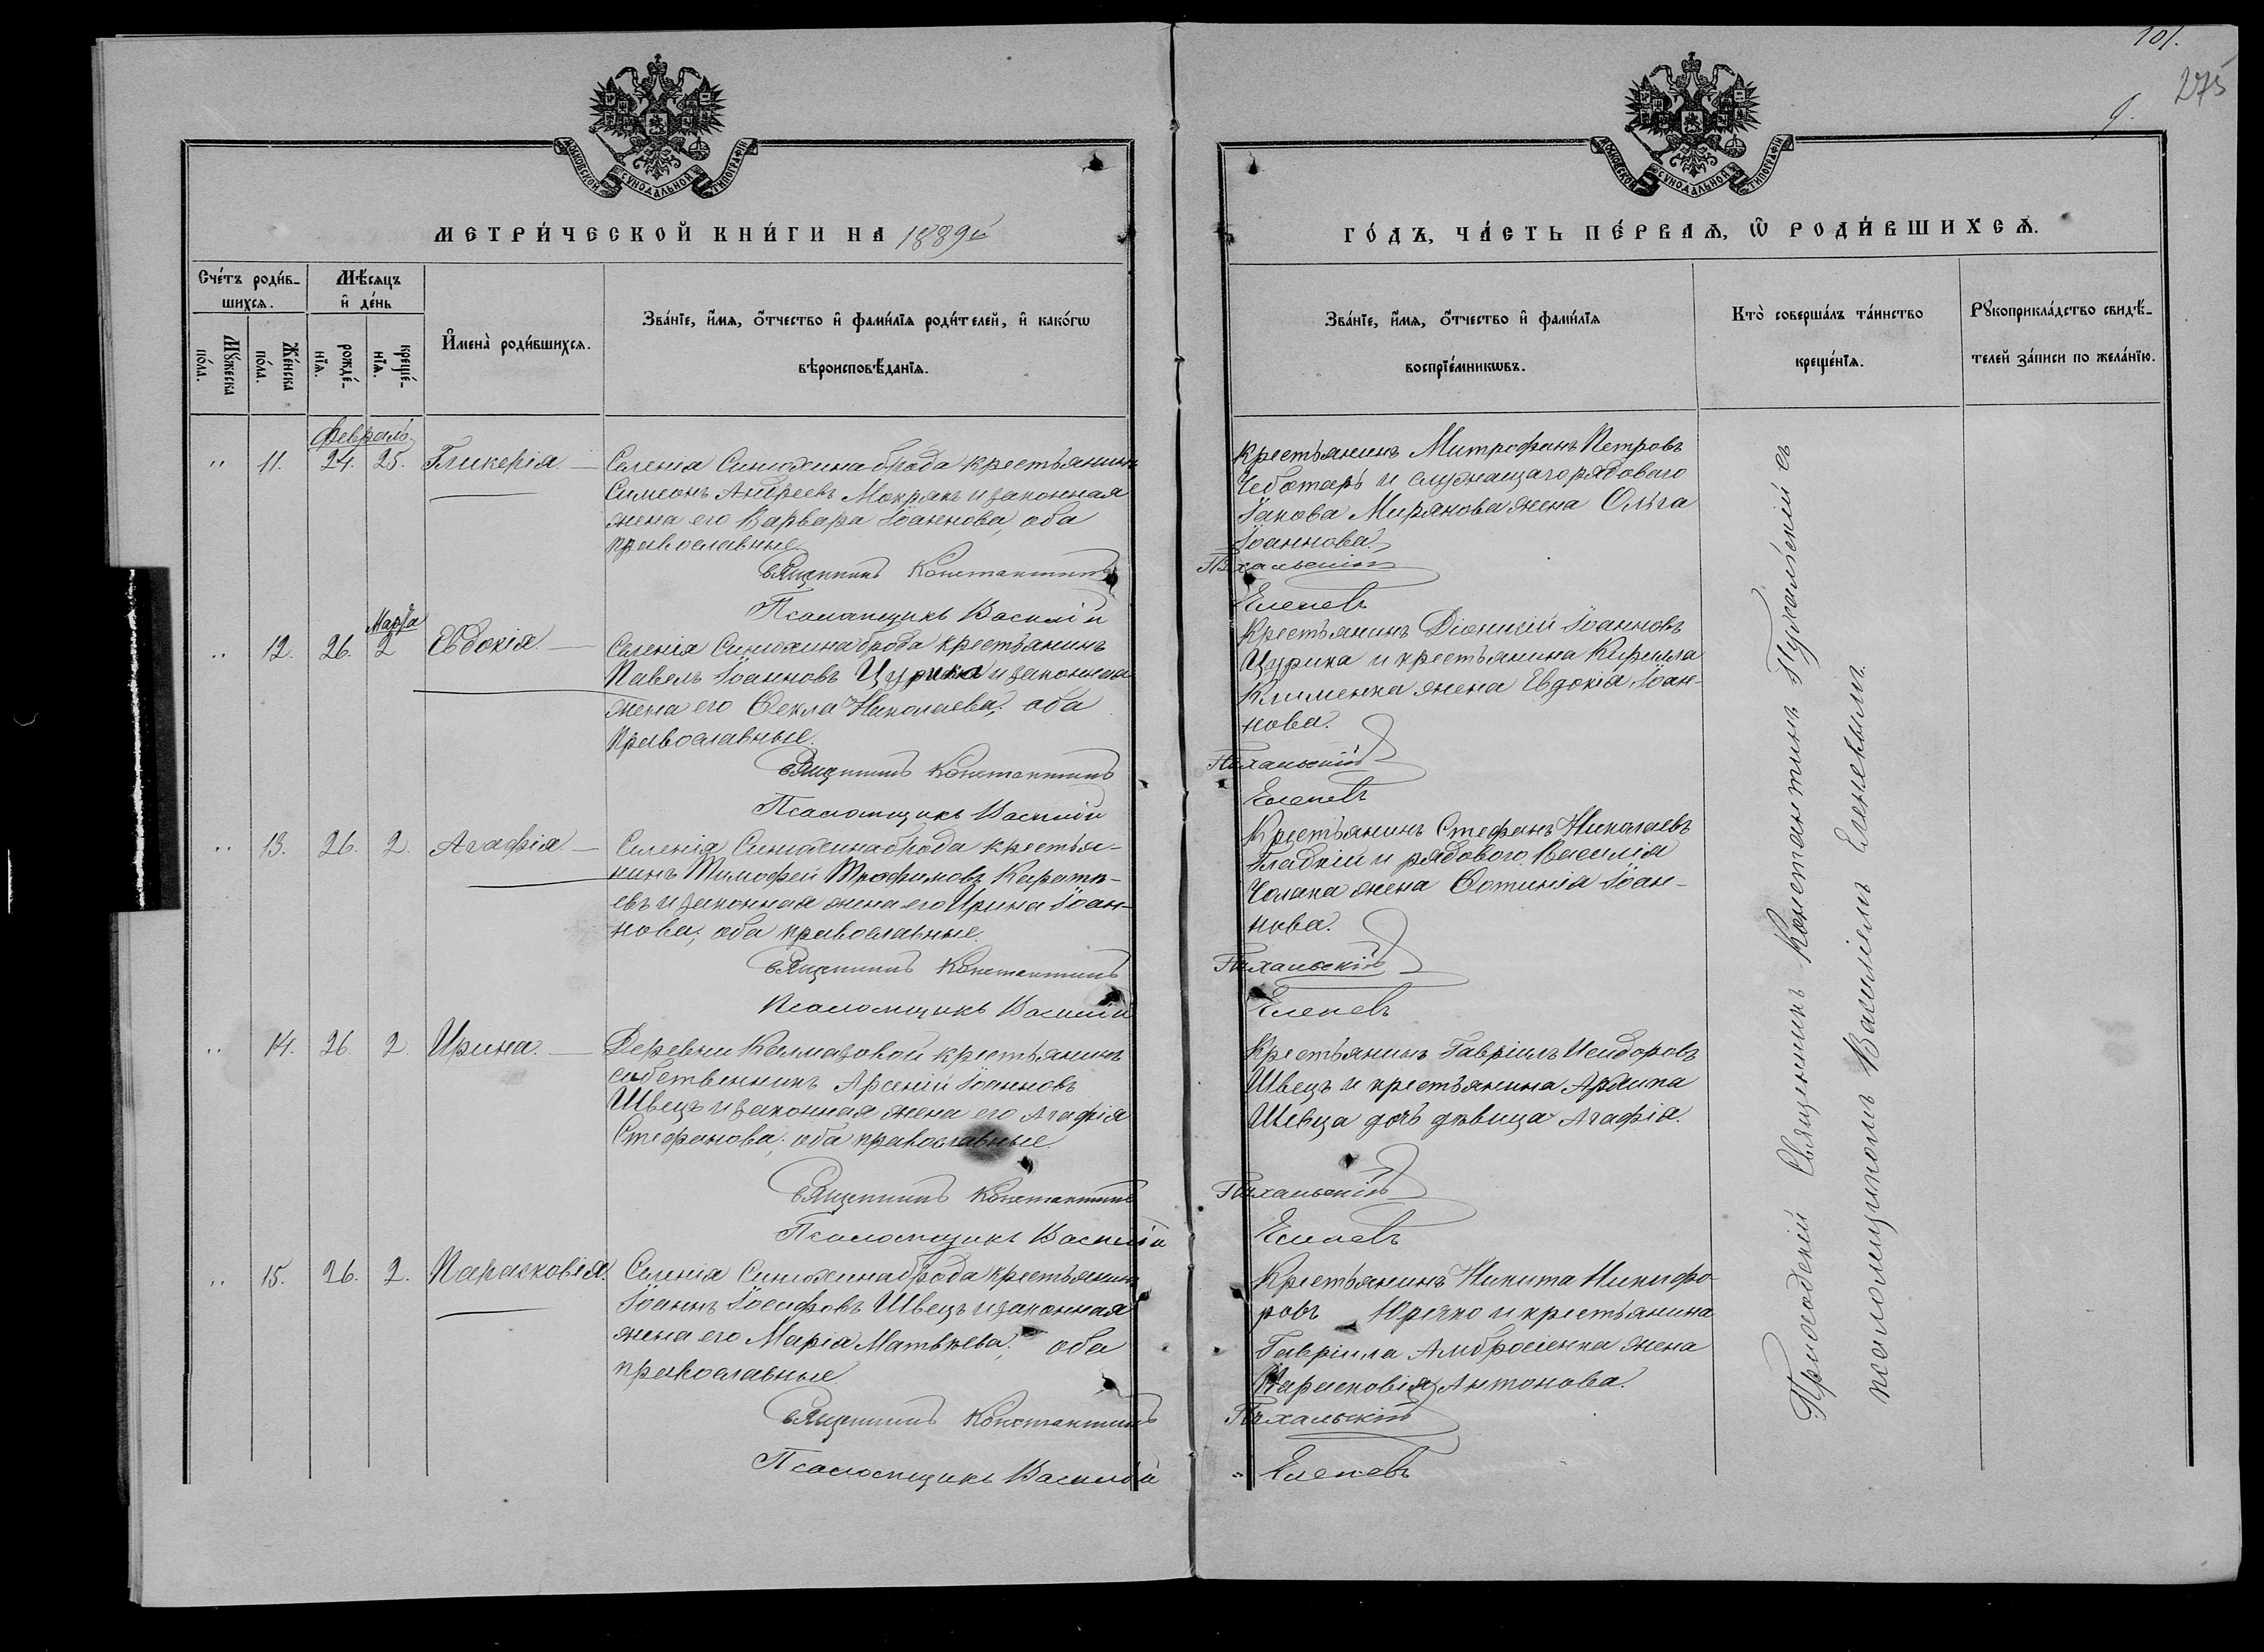 101.
275
9.
МОСКОВСКОЙ СУНОДАЛЬНОЙ ТИПОГРАФІИ
МОСКОВСКОЙ СУНОДАЛЬНОЙ ТИПОГРАФІИ
МЕТРИ́ЧЕСКОЙ КНИ́ГИ НА 1889й
ГО́ДЪ, ЧА́СТЬ ПЕ́РВАѦ, Ѡ҃ РОДИ́ВШИХСѦ.
Сче́тъ роди́в-
шихсѧ.
Мꙋ́жеска
по́ла.
Же́нска
по́ла.
Мѣ́сѧцъ
и҆ де́нь
рожде́-
нїѧ.
креще́-
нїѧ.
И҆мена̀ роди́вшихсѧ.
Зва́нїе, и҆́мѧ, ѻ҆́тчество и҆ фами́лїѧ роди́телей, и҆ како́гѡ
вѣроисповѣ́данїѧ.
Зва́нїе, и҆́мѧ, ѻ҆́тчество и҆ фами́лїѧ
воспрїе́мникѡвъ.
Кто̀ соверша́лъ та́инство
креще́нїѧ.
Рꙋкоприкла́дство свидѣ́-
телей за́писи по жела́нїю.
Февраль
" 11. 24. 25. Гликерія. —
Селенія Синюхина брода крестьянинъ
Симеонъ Андреевъ Мокрякъ и законная
жена его Варвара Іоаннова, оба
православные.
Священникъ Константинъ
Псаломщикъ Василій
Крестьянинъ Митрофанъ Петровъ
Чеботарь и служащаго рядоваго
Іакова Мирянова жена Ольга
Іоаннова.
Еленевъ
Марта
" 12. 26. 2 Евдокія. —
Селенія Синюхина брода крестьянинъ
Павелъ Іоанновъ Цурика и законная
жена его Ѳекла Николаева, оба
Православные.
Священникъ Константинъ
Псаломщикъ Василій
Крестьянинъ Діонисій Іоанновъ
Цурика и крестьянина Кирилла
Клименка жена Евдокія Іоан-
нова.
Еленевъ
" 13. 26. 2. Агафія. —
Селенія Синюхина брода крестья-
нинъ Тимофей Трофимовъ
евъ и законная жена его Ирина Іоан-
нова, оба православные.
Священникъ Константинъ
Псаломщикъ Василій
Крестьянинъ Стефанъ Николаевъ
Гладкій и рядового Василія
Чолака жена Фотинія Іоан-
нова.
Еленевъ
" 14. 26. 2. Ирина. —
Деревни Калмазовой крестьянинъ
собственникъ Арсеній Іоанновъ
Швецъ и законная жена его Агафія
Стефанова, оба православные
Священникъ Константинъ
Псаломщикъ Василій
Крестьянинъ Гавріилъ Исидоровъ
Швецъ и крестьянина Архипа
Шевца дочь дѣвица Агафія.
Еленевъ
" 15. 26. 2. Парасковія.
Селенія Синюхина брода крестьянинъ
Іоаннъ Іосифовъ Швецъ и законная
жена его Марія Матвѣева, оба
православные.
Священникъ Константинъ
Псаломщикъ Василій
Крестьянинъ Никита Никифо-
ровъ Юречко и крестьянина
Гавріила Амбросіенка жена
Парасковія Антонова.
Еленевъ
Приходскій Священникъ Константинъ съ
псаломщикомъ Василіемъ Еленевымъ.